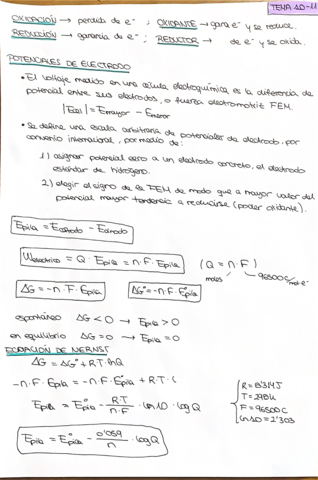 TEMA 10-11
OXIDACIÓN → perdida de e⁻ ; OXIDANTE → gana e⁻ y se reduce.
REDUCCIÓN → ganancia de e⁻ ; REDUCTOR → de e⁻ y se oxida.
POTENCIALES DE ELECTRODO
• El voltaje medido en una célula electroquímica es la diferencia de
potencial entre sus electrodos, o fuerza electromotriz FEM.
|Ecel| = Emayor − Emenor
• Se define una escala arbitraria de potenciales de electrodo, por
convenio internacional, por medio de:
1) asignar potencial cero a un electrodo concreto, el electrodo
estándar de hidrógeno.
2) elegir el signo de la FEM de modo que a mayor valor del
potencial mayor tendencia a reducirse (poder oxidante).
Epila = Ecátodo − Eánodo
Weléctrico = Q · Epila = n · F · Epila (Q = n · F)
moles 96500 C/mol e⁻
ΔG = −n · F · Epila ΔG° = −n · F · E°pila
espontáneo ΔG < 0 → Epila > 0
en equilibrio ΔG = 0 → Epila = 0
ECUACIÓN DE NERNST
ΔG = ΔG° + R·T·lnQ
−n · F · Epila = −n · F · E°pila + R·T · (
Epila = E°pila − R·T/n·F · ln10 · logQ
R = 8'314 J
T = 298 K
F = 96500 C
ln10 = 2'303
Epila = E°pila − 0'059/n · logQ